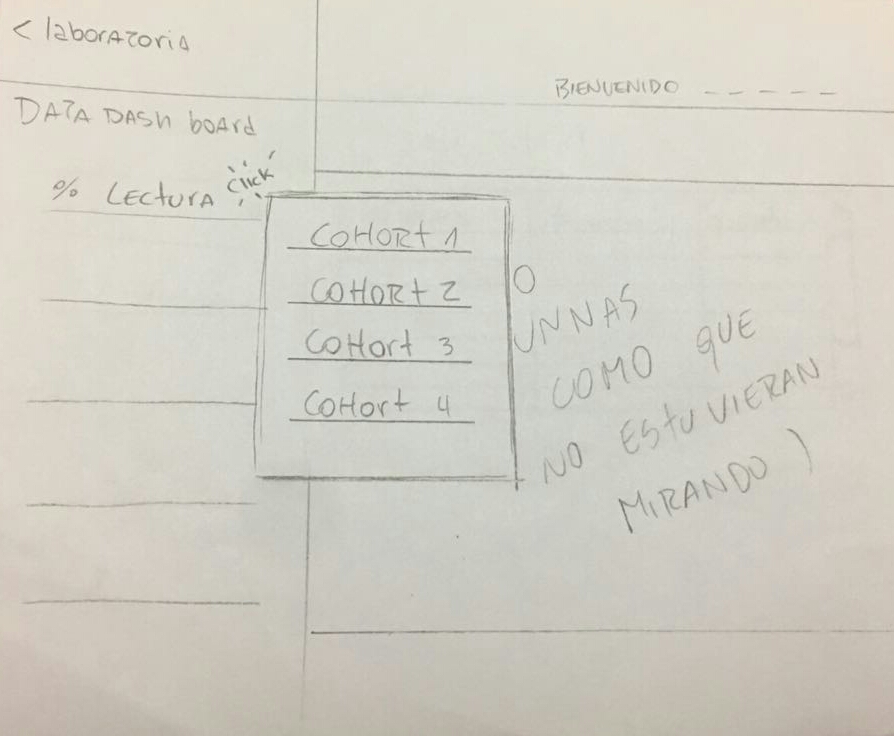 < laboratoria
BIENVENIDO _ _ _ _ _
DATA DASH board
% LECTURA
Click
COHORT 1
COHORT 2
COHort 3
COHort 4
O
UNNAS
COMO QUE
NO ESTUVIERAN
MIRANDO )